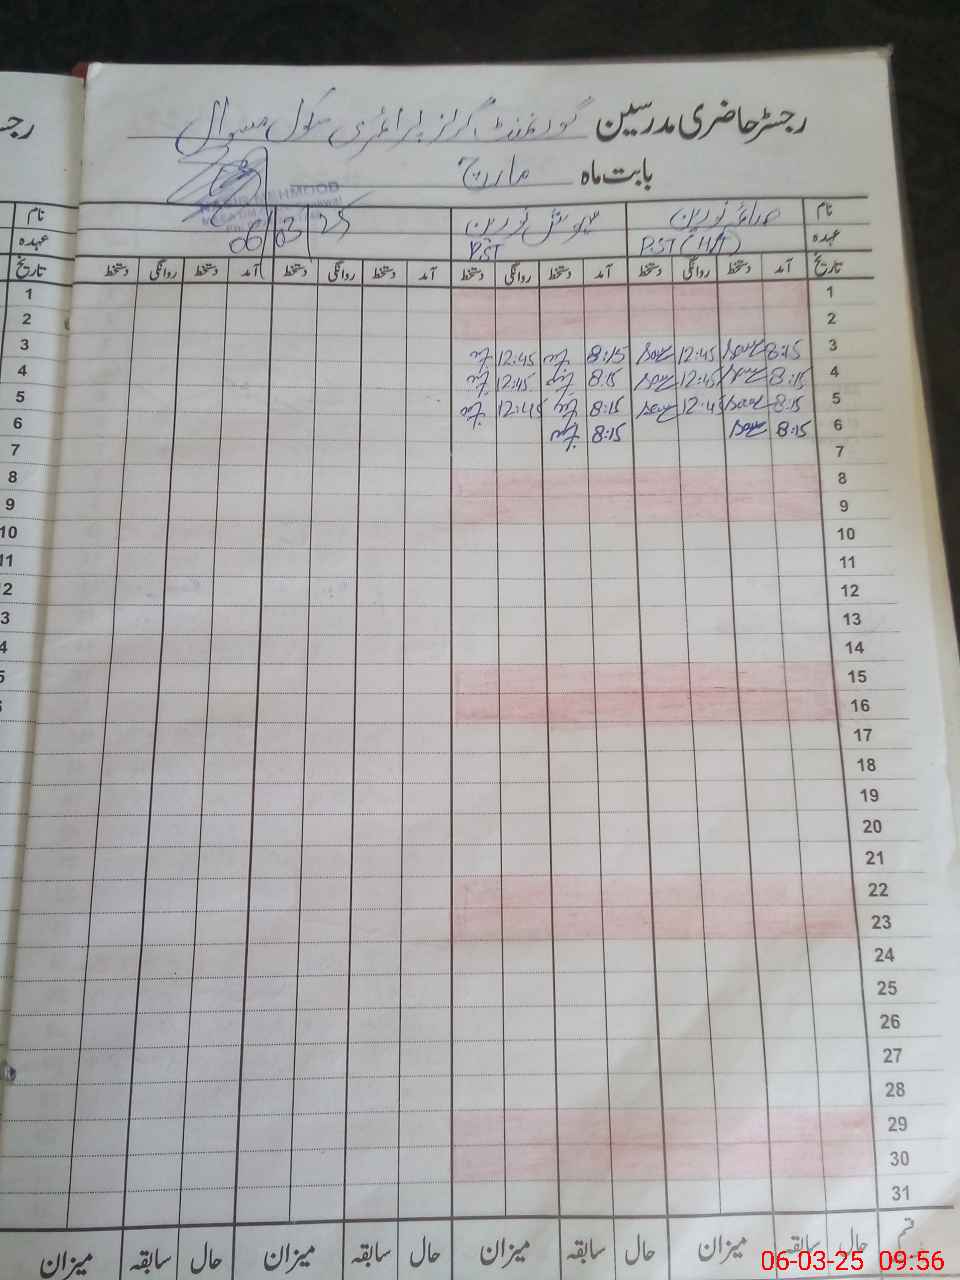 رجسٹر حاضری مدرسین گورنمنٹ گرلز پرائمری سکول مسوال
بابت ماہ مارچ
نام نورین نورین
06/03/25
عہدہ P.ST (H/T) P.ST
تاریخ آمد دستخط روانگی دستخط آمد دستخط روانگی دستخط آمد دستخط روانگی دستخط آمد دستخط روانگی دستخط
1
2
3 8:15 12:45 8:15 12:45
4 8:15 12:45 8:15 12:45
5 8:15 12:45 8:15 12:45
6 8:15 8:15
7
8
9
10
11
12
13
14
15
16
17
18
19
20
21
22
23
24
25
26
27
28
29
30
31
حال سابقہ میزان حال سابقہ میزان حال سابقہ میزان حال سابقہ میزان
نام
عہدہ
تاریخ
1
2
3
4
5
6
7
8
9
10
11
06-03-25 09:56